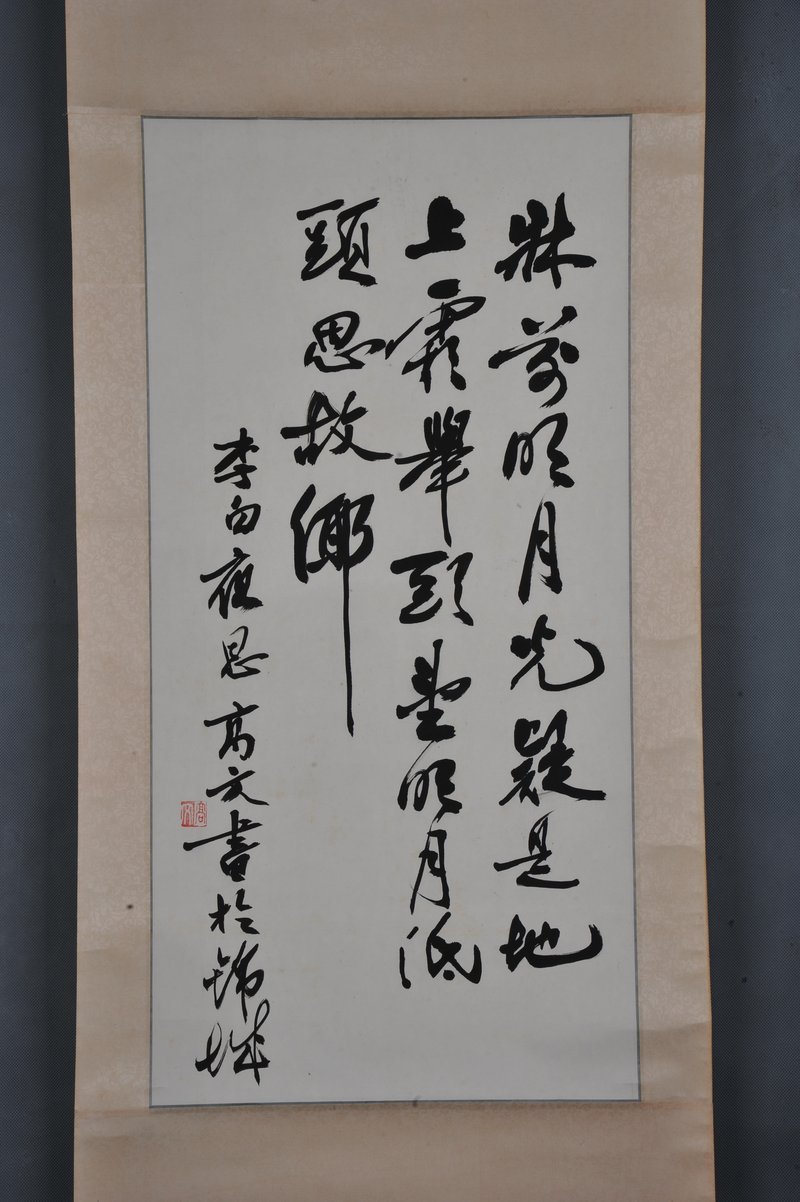 牀前明月光疑是地
上霜舉頭望明月低
頭思故鄉
李白夜思高文書於錦城